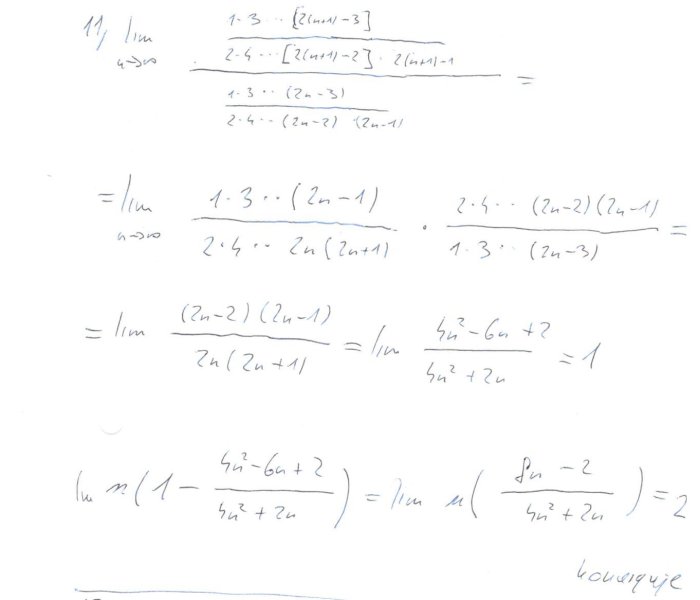 11, lim n→∞ (1·3 ··· [2(n+1)-3] / 2·4 ··· [2(n+1)-2] · 2(n+1)-1) / (1·3 ·· (2n-3) / 2·4 ·· (2n-2) (2n-1)) =
= lim n→∞ 1·3 ·· (2n-1) / 2·4 ·· 2n(2n+1) · 2·4 ·· (2n-2)(2n-1) / 1·3 ·· (2n-3) =
= lim (2n-2)(2n-1) / 2n(2n+1) = lim 4n²-6n+2 / 4n²+2n = 1
lim n(1 - 4n²-6n+2 / 4n²+2n) = lim n(8n-2 / 4n²+2n) = 2
konverguje